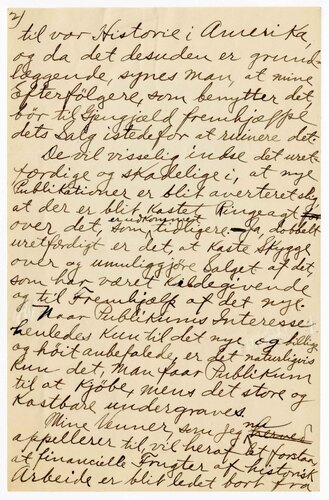 2)
til vor Historie i Amerika,
og da det desuden er grund-
læggende, synes man, at mine
Efterfølgere, som benytter det,
bør til Gjengjæld fremhjælpe
dets Salg istedefor at ruinere det.
De vil visselig indse det uret-
færdige og skadelige i, at nye
Publikationer er blit averteret slig
at der er blit kastet Ringeagt
over det, som er udkommet tidligere. Ja, dobbelt
uretfærdigt er det, at kaste Skygge
over og umuliggjøre Salget af det,
som har været Kildegivende
og til Fremhjælp af det nye.
Naar Publikums Interesse
henledes kun til det nye og billige
og høit anbefalede, er det naturligvis
kun det, man faar Publikum
til at Kjøbe, mens det store og
kostbare undergraves.
Mine Venner som jeg nu
appellerer til vil heraf forstaa,
at financielle Frugter af historisk
Arbeide er blit ledet bort fra